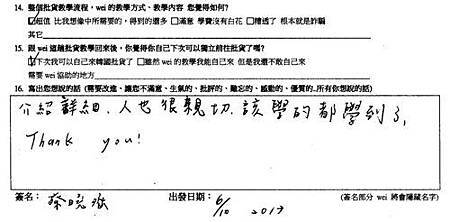 14. 整個批貨教學流程，wei 的教學方式、教學內容 您覺得如何?
☑超值 比我想像中所需要的，得到的還多 □滿意 學費沒有白花 □糟透了 根本就是詐騙
其它
15. 跟 wei 這趟批貨教學回來後，你覺得你自己下次可以獨立前往批貨了嗎?
☑下次我可以自己來韓國批貨了 □雖然 wei 的教學我能自己來 但是我還不敢自己來
需要 wei 協助的地方
16. 寫出您想說的話 (需要改進、讓您不滿意、生氣的、批評的、難忘的、感動的、優質的..所有你想說的話)
介紹詳細、人也很親切、該學的都學到了，
Thank you!
簽名： 蔡曉 出發日期： 6/10 2017 (簽名部分 wei 將會隱藏名字)